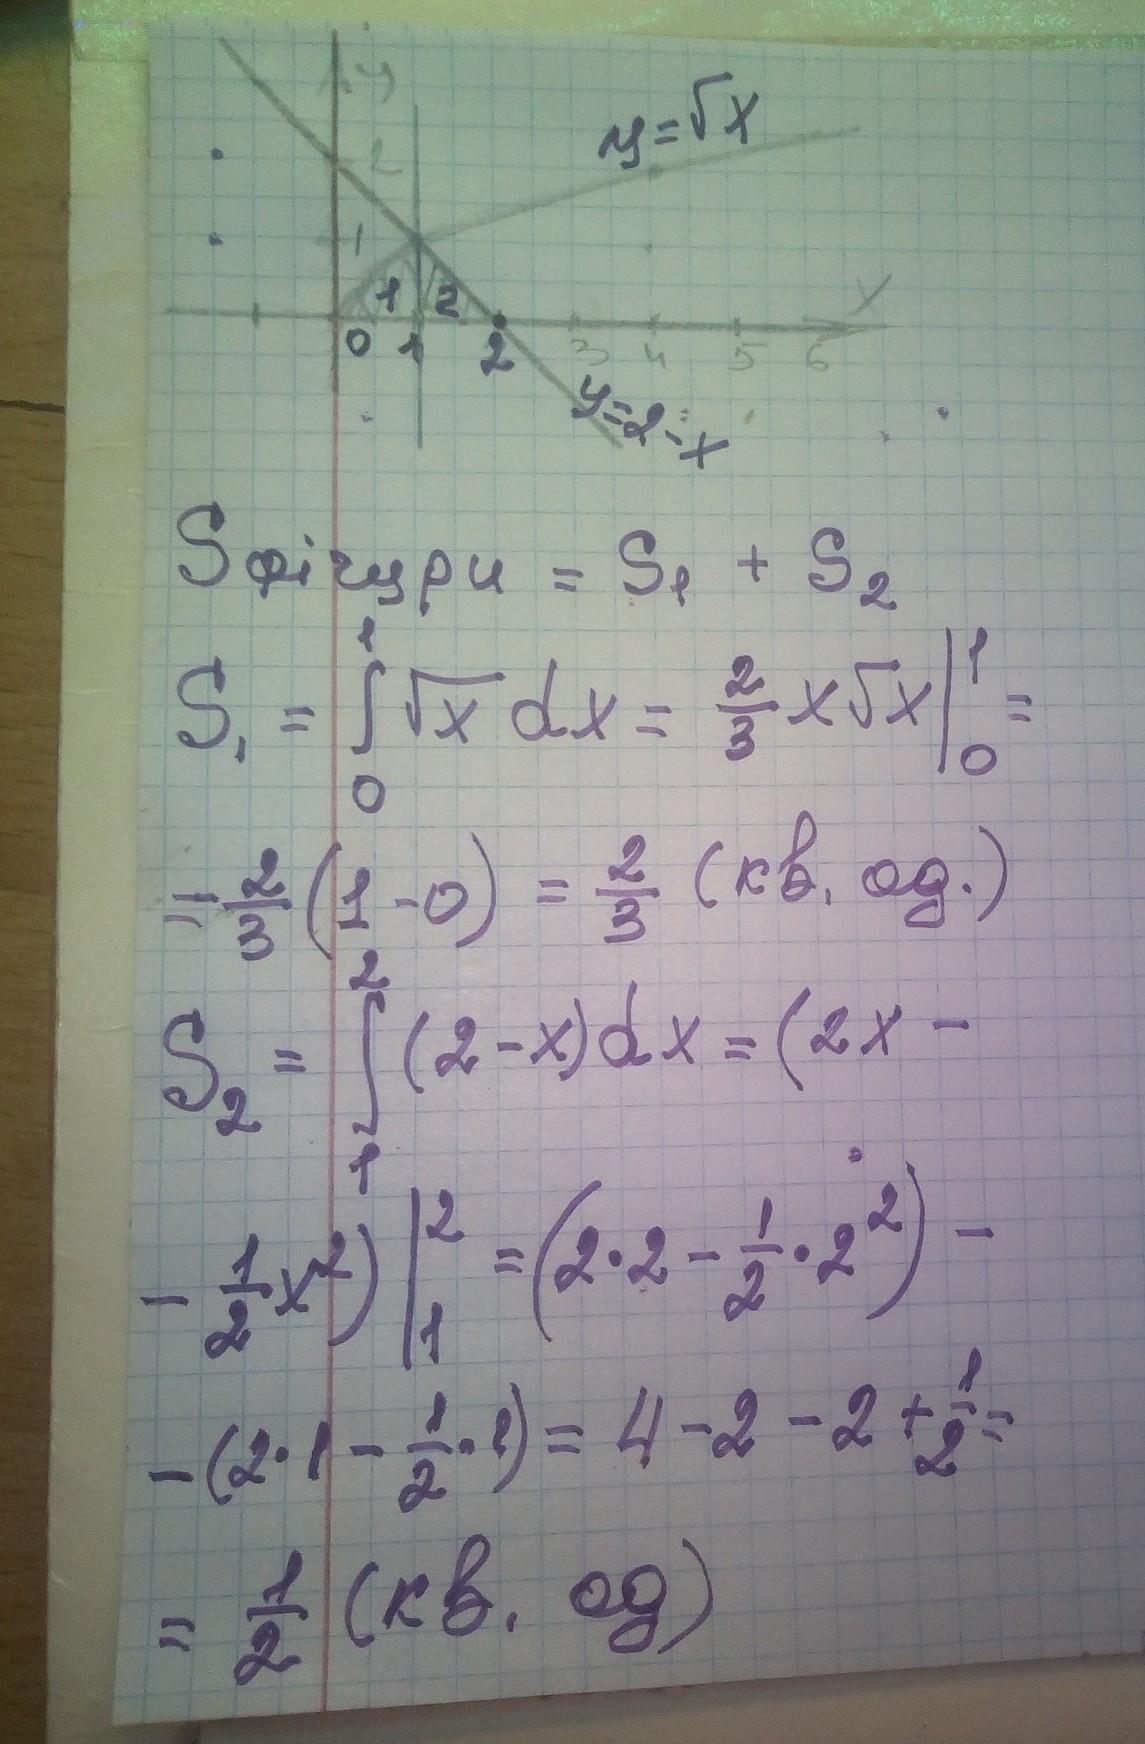 y
y = √x
2
1
1 2
x
0 1 2 3 4 5 6
y = 2 - x
S фігури = S₁ + S₂
S₁ = ∫₀¹ √x dx = 2/3 x√x |₀¹ =
= 2/3 (1 - 0) = 2/3 (кв. од.)
S₂ = ∫₁² (2 - x) dx = (2x -
- 1/2 x²) |₁² = (2·2 - 1/2 · 2²) -
- (2·1 - 1/2 · 1) = 4 - 2 - 2 + 1/2 =
= 1/2 (кв. од)